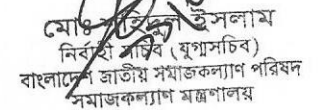 মোঃ ইসলাম
নির্বাহী সচিব (যুগ্মসচিব)
বাংলাদেশ জাতীয় সমাজকল্যাণ পরিষদ
সমাজকল্যাণ মন্ত্রণালয়